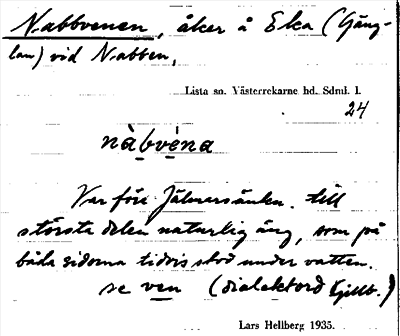 Nabbvenen, åker å Eka (Gäng-
lan) vid Nabben,
Lista sn. Västerrekarne hd. Sdml. l.
24
nàbvéna
Var före Jälmarsänkn. till
största delen naturlig äng, som på
båda sidorna tidvis stod under vatten.
se ven (dialektord Kjillb.)
Lars Hellberg 1935.